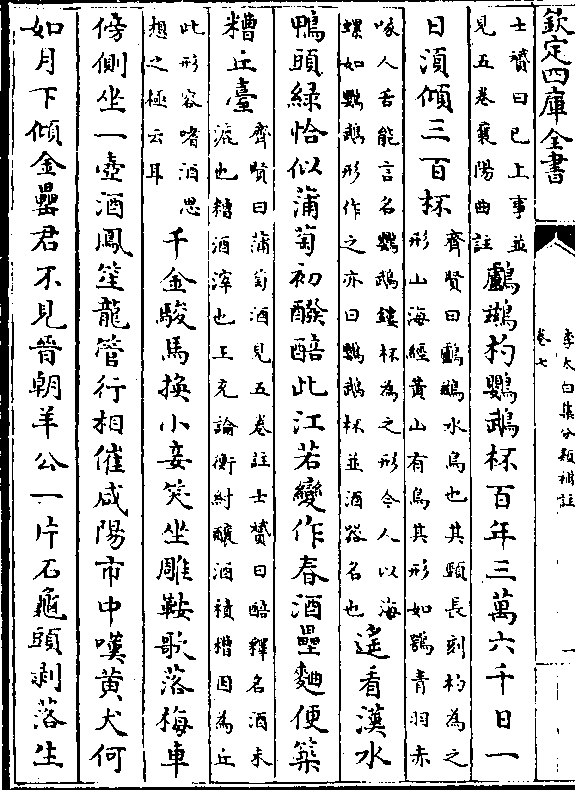 欽定四庫全書
李太白集分類補註
卷七
一
士贇曰已上事並
見五卷襄陽曲註
鸕鷀杓鸚鵡杯百年三萬六千日一
日須傾三百杯
齊賢曰鸕鷀水鳥也其頸長刻杓為之
形山海經黃山有鳥其形如鴞青羽赤
喙人舌能言名鸚鵡鏤杯為之形今人以海
螺如鸚鵡形作之亦曰鸚鵡杯並酒器名也
遙看漢水
鴨頭綠恰似蒲萄初醱醅此江若變作春酒壘麴便築
糟丘臺
齊賢曰蒲萄酒見五卷註士贇曰醅釋名酒未
漉也糟酒滓也王充論衡紂釀酒積糟因為丘
此形容嗜酒思
想之極云耳
千金駿馬換小妾笑坐雕鞍歌落梅車
傍側坐一壺酒鳳笙龍管行相催咸陽市中嘆黃犬何
如月下傾金罍君不見晉朝羊公一片石龜頭剝落生